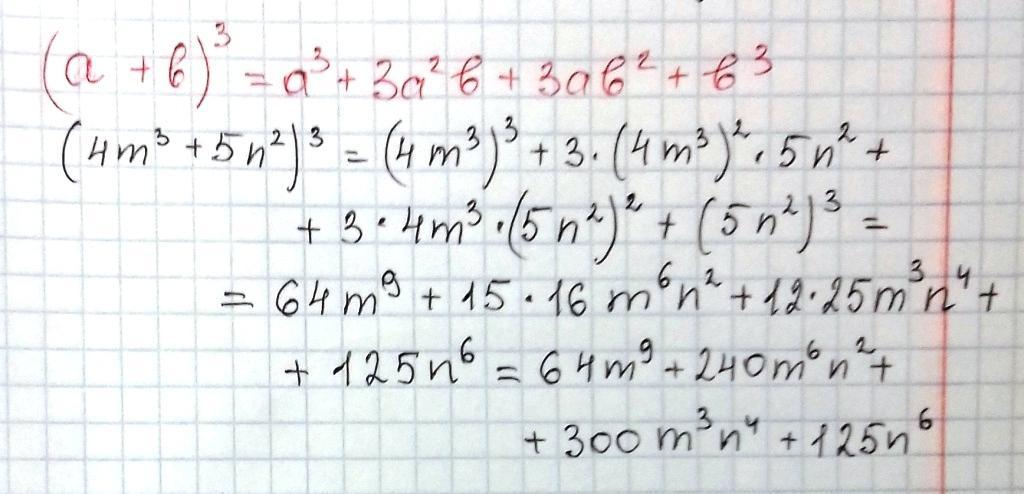 (a + b)³ = a³ + 3a²b + 3ab² + b³
(4m³ + 5n²)³ = (4m³)³ + 3·(4m³)²·5n² +
+ 3·4m³·(5n²)² + (5n²)³ =
= 64m⁹ + 15·16m⁶n² + 12·25m³n⁴ +
+ 125n⁶ = 64m⁹ + 240m⁶n² +
+ 300m³n⁴ + 125n⁶